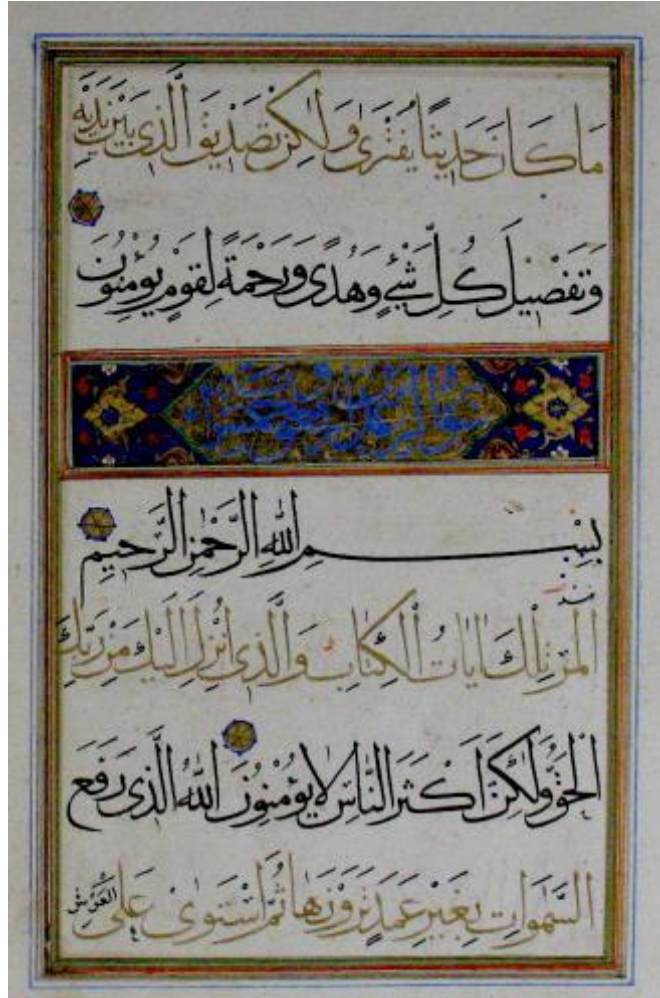 مَا كَانَ حَدِيثًا يُفْتَرٰى وَلٰكِنْ تَصْدِيقَ الَّذِى بَيْنَ يَدَيْهِ
وَتَفْصِيلَ كُلِّ شَىْءٍ وَهُدًى وَرَحْمَةً لِقَوْمٍ يُؤْمِنُونَ
بِسْمِ اللّٰهِ الرَّحْمٰنِ الرَّحِيمِ
المر تِلْكَ اٰيَاتُ الْكِتَابِ وَالَّذِى اُنْزِلَ اِلَيْكَ مِنْ رَبِّكَ
الْحَقُّ وَلٰكِنَّ اَكْثَرَ النَّاسِ لَا يُؤْمِنُونَ اَللّٰهُ الَّذِى رَفَعَ
السَّمٰوَاتِ بِغَيْرِ عَمَدٍ تَرَوْنَهَا ثُمَّ اسْتَوٰى عَلَى الْعَرْشِ